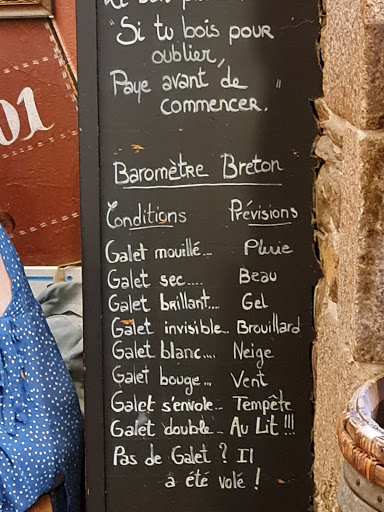 "Si tu bois pour
oublier,
Paye avant de "
commencer.
Baromètre Breton
Conditions Prévisions
Galet mouillé... Pluie
Galet sec.... Beau
Galet brillant.... Gel
Galet invisible.. Brouillard
Galet blanc.... Neige
Galet bouge... Vent
Galet s'envole... Tempête
Galet double... Au Lit !!!
Pas de Galet ? Il
a été volé !
01